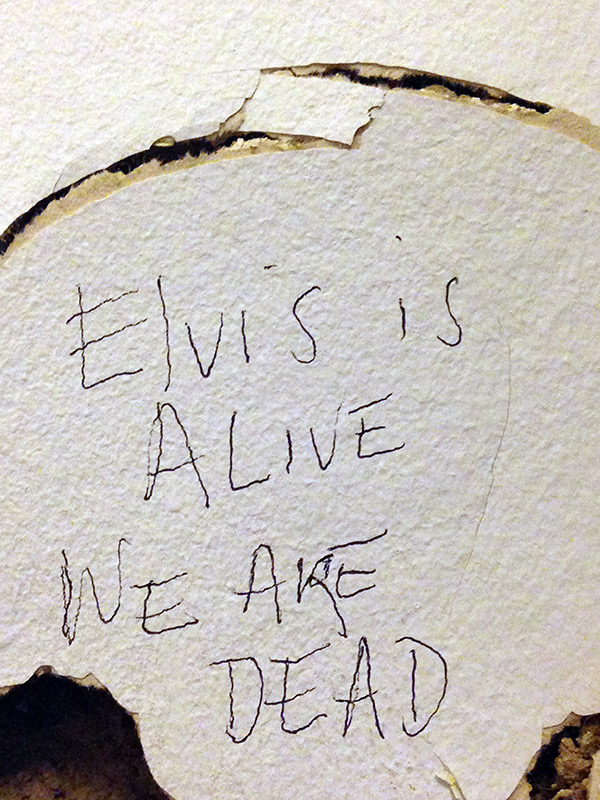 Elvis is
ALIVE
WE ARE
DEAD